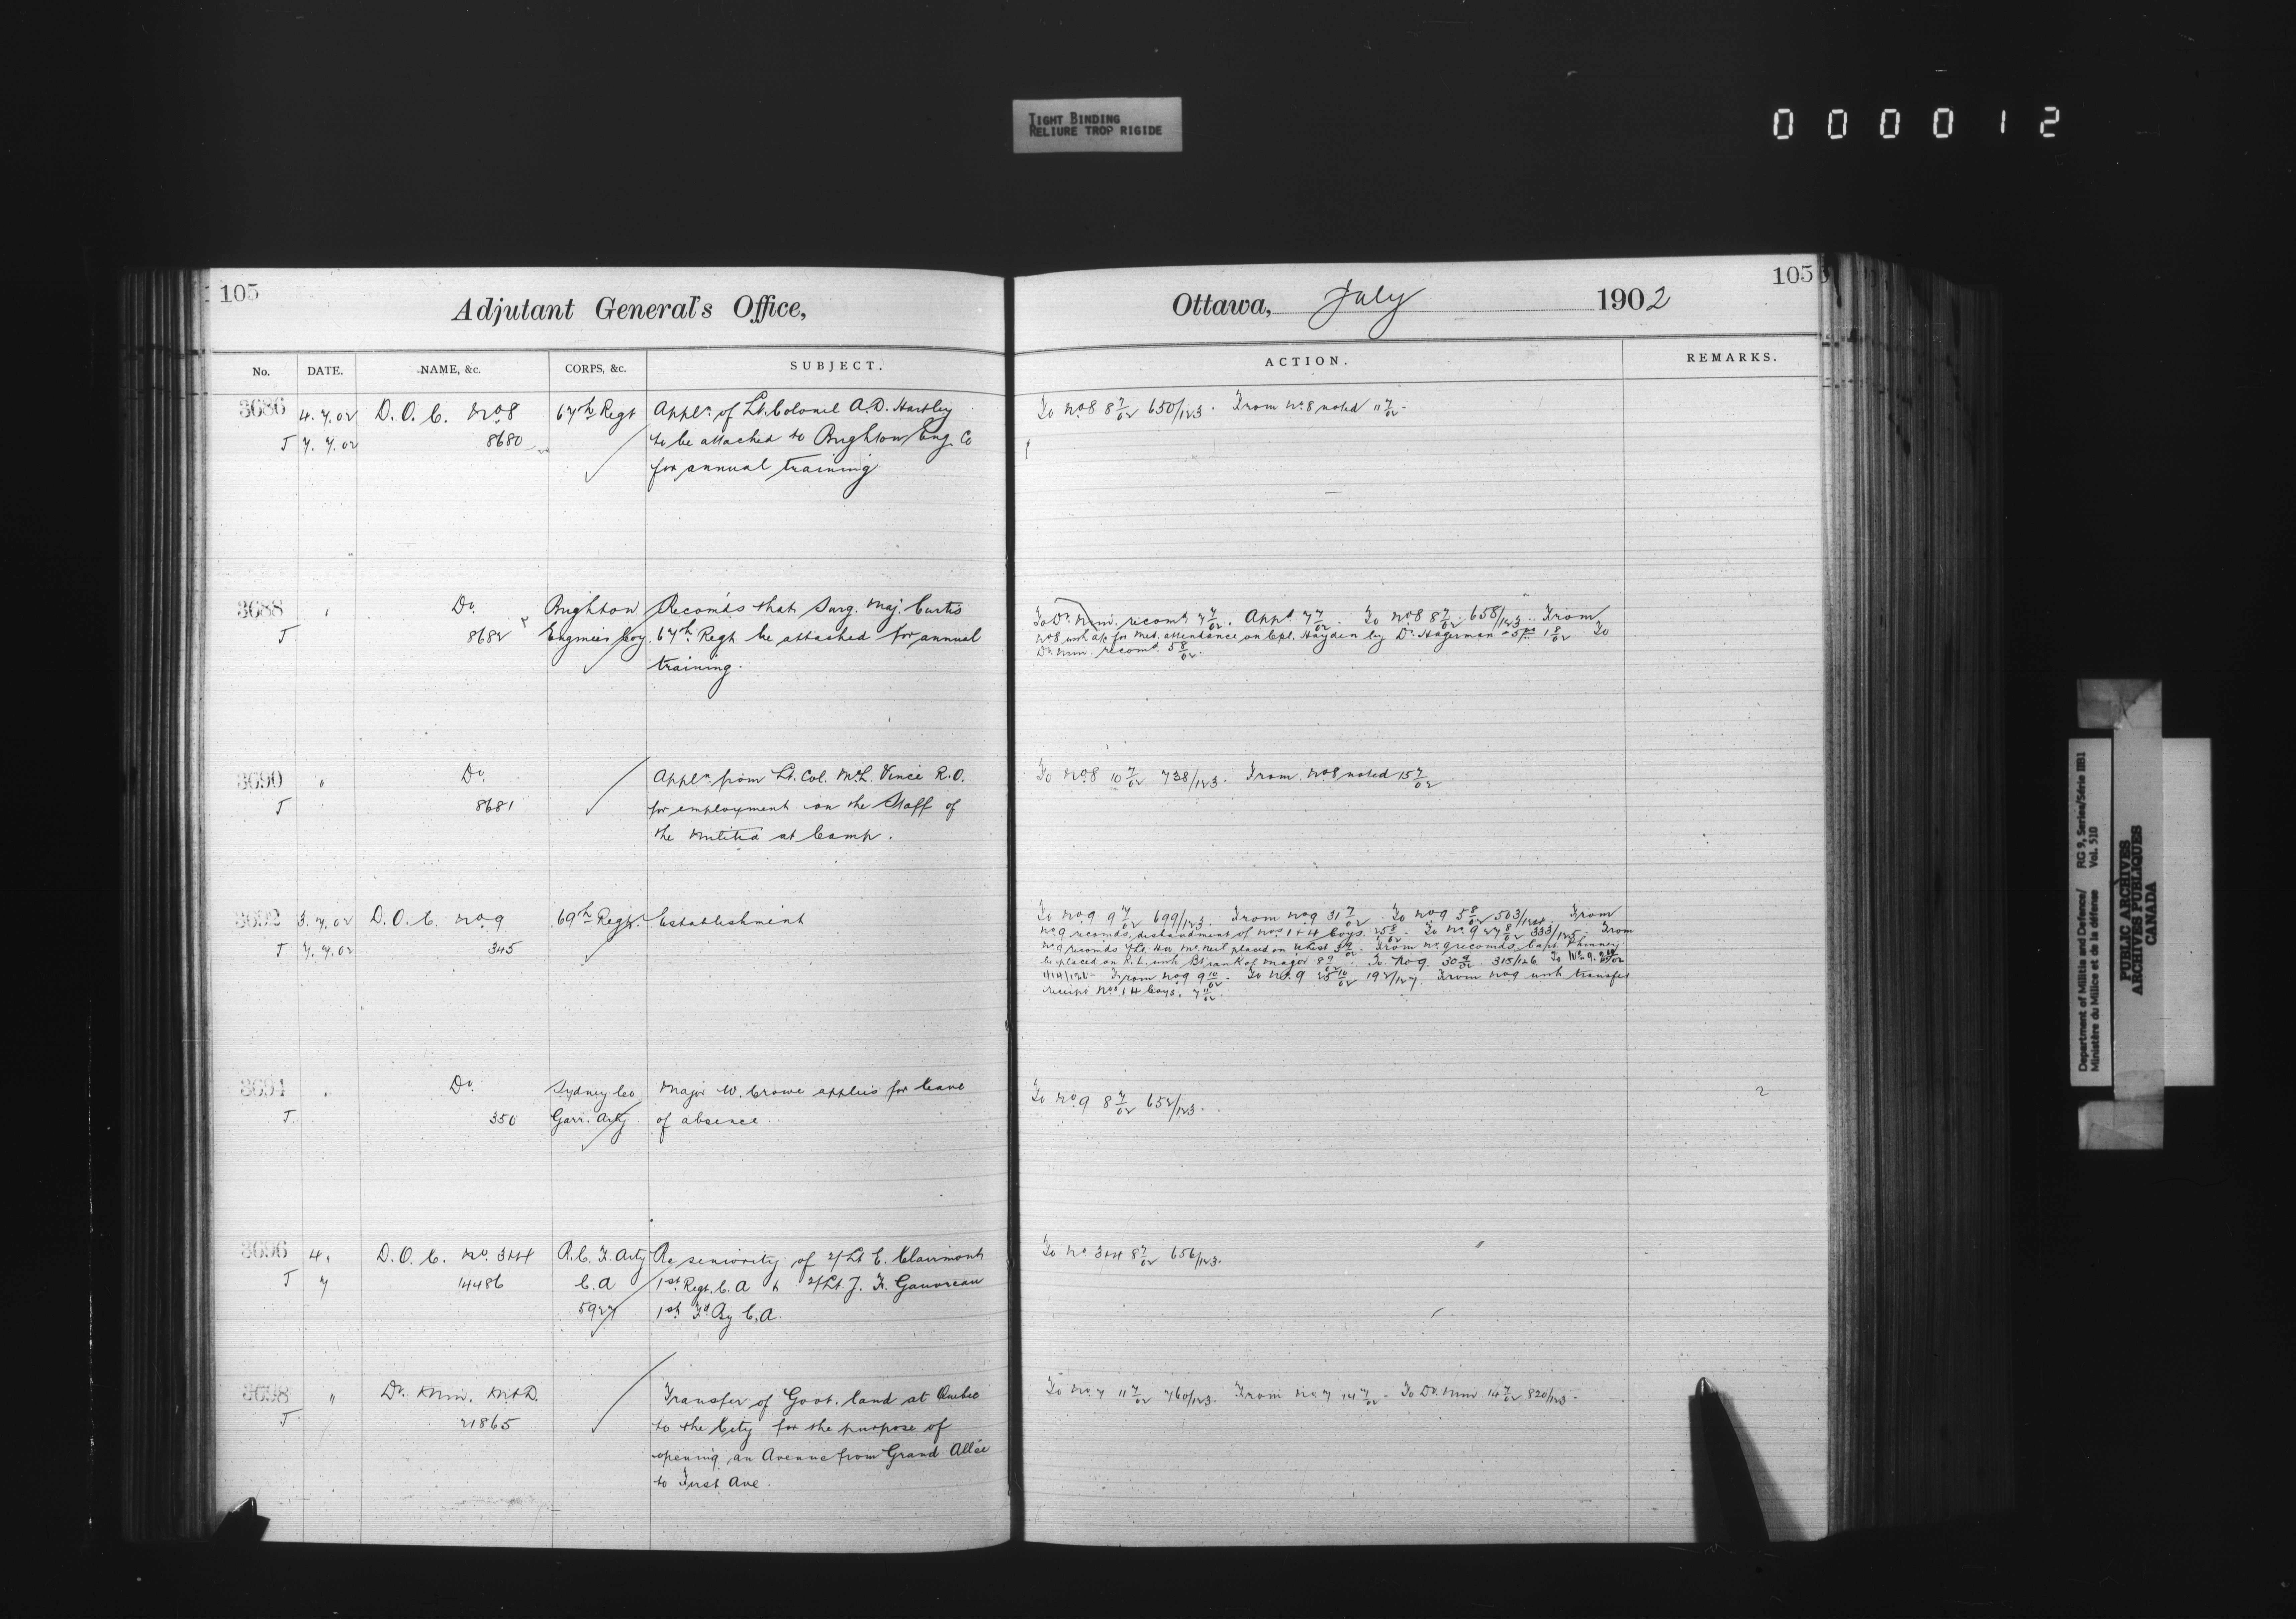 TIGHT BINDING
RELIURE TROP RIGIDE
000012
105
Adjutant General's Office,
No. DATE. NAME, &c. CORPS, &c. SUBJECT.
3686 4.7.02 D.O.C. No 8 67th Regt Appln. of Lt. Colonel A.D. Hartley
T 7.7.02 8680 to be attached to Brighton Eng. Co
for annual training
3688 " Do. Brighton Recomds that Surg. Maj. Curtis
T 8682 Engineer Coy. 67th Regt. be attached for annual
training.
3690 " Do. Appln. from Lt. Col. McL. Vince R.O.
T 8681 for employment on the Staff of
the Militia at Camp.
3692 3.7.02 D.O.C. No. 9 69th Regt. Establishment
T 7.7.02 345
3694 " Do. Sydney Co Major W. Crowe applies for leave
T. 350 Garr. Arty of absence.
3696 4. D.O.C. No. R.C.F. Arty Re seniority of 2/Lt E. Clairmont
T 7 14486 C.A 1st Regt. C.A & 2/Lt. J. F. Gauvreau
5927 1st Fd By C.A.
3698 " D. Min. M&D. Transfer of Govt. land at Quebec
T 21865 to the City for the purpose of
opening an Avenue from Grand Allée
to First Ave.
105
Ottawa, July 1902
ACTION. REMARKS.
To No 8 8 7/02 650/123. From No. 8 noted 11 7/02.
To D. Min. recomd 7 7/02. Appd 7 7/02. To No 8 8 7/02 658/123. From
No 8 with a/c for Med. attendance on Cpl. Hayden by Dr. Hagerman 1 8/02 To
D. Min. recomd. 5 8/02.
To No. 8 10 7/02 738/123. From No. 8 noted 15 7/02
To No 9 9 7/02 699/123. From No 9 31 7/02. To No 9 5 8/02 503/124. From
No. 9 recomds disbandment of Nos 1 & 4 Coys. 25 8/02. To No. 9 27 8/02 333/125. From
No. 9 recomds Lt. McNeil placed on From No. 9 recomds Capt. Phinney
be placed on R.L. with Bt rank of Major 8 9/02. To No 9. 30 9/02 315/126 To No. 9.
From No 9 9 10/02. To No. 9 25 10/02 192/127. From No 9 with transfer
receipt Nos 1 4 Coys. 7 11/02.
To No. 9 8 7/02 652/123.
2
To No 8 7/02 656/123.
To No 7 11 7/02 760/123. From No 7 14 7/02. To D. Min 14 7/02 820/123.
Department of Militia and Defence/ RG 9, Series/Série IIB1
Ministère du Milice et de la défense Vol. 510
PUBLIC ARCHIVES
ARCHIVES PUBLIQUES
CANADA